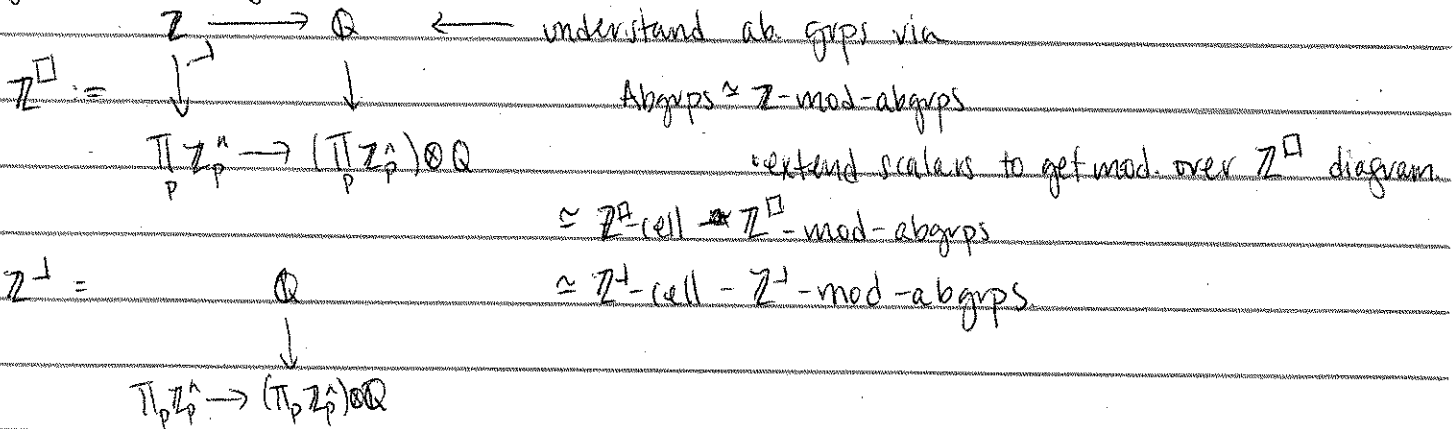 ℤ ⟶ ℚ ⟵ understand ab. grps via
ℤ^□ := ↓ ⌟ ↓ Abgrps ≃ ℤ-mod-abgrps
∏_p ℤ_p^∧ → (∏_p ℤ_p^∧) ⊗ ℚ · extend scalars to get mod. over ℤ^□ diagram.
≃ ℤ^□-cell - ℤ^□-mod-abgrps
ℤ^⌟ = ℚ ≃ ℤ^⌟-cell - ℤ^⌟-mod-abgrps.
↓
∏_p ℤ_p^∧ → (∏_p ℤ_p^∧)⊗ℚ